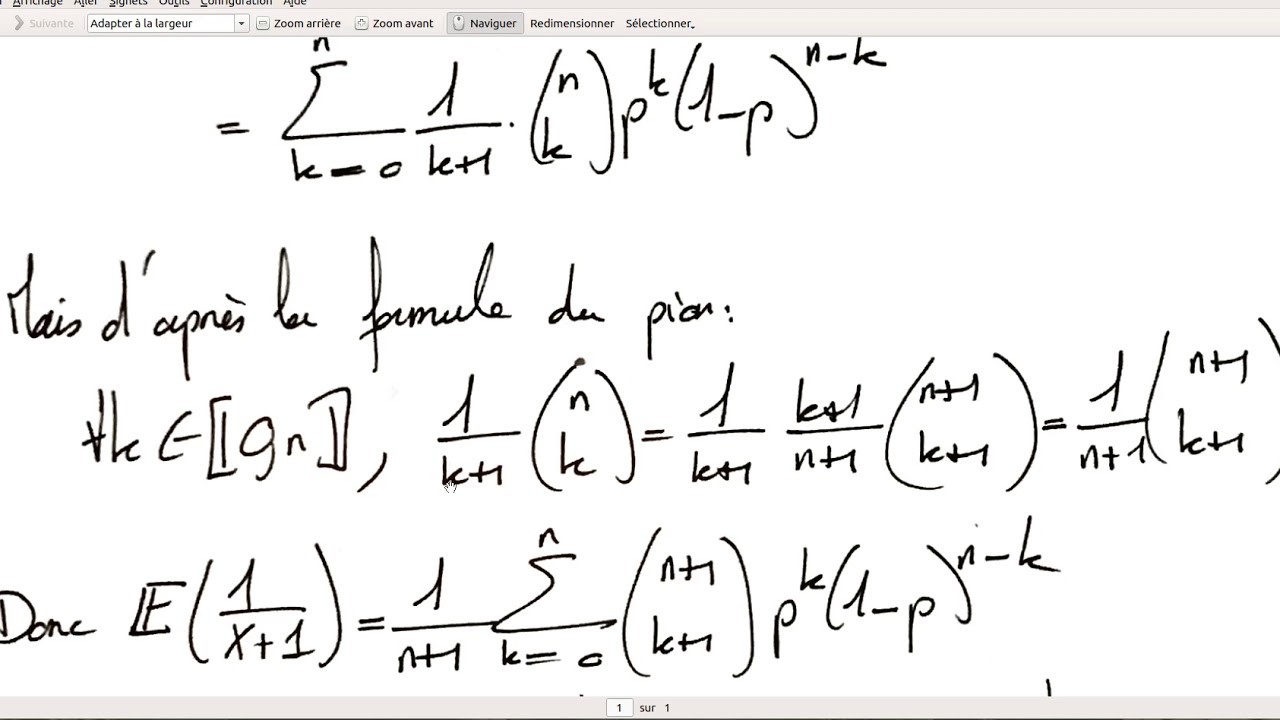 Affichage Aller Signets Outils Configuration Aide
Suivante Adapter à la largeur Zoom arrière Zoom avant Naviguer Redimensionner Sélectionner
= ∑_{k=0}^{n} 1/(k+1) · (n k) p^k (1-p)^{n-k}
Mais d'après la formule du pion :
∀k ∈ ⟦0, n⟧, 1/(k+1) (n k) = 1/(k+1) (k+1)/(n+1) (n+1 k+1) = 1/(n+1) (n+1 k+1)
Donc 𝔼(1/(X+1)) = 1/(n+1) ∑_{k=0}^{n} (n+1 k+1) p^k (1-p)^{n-k}
1 sur 1